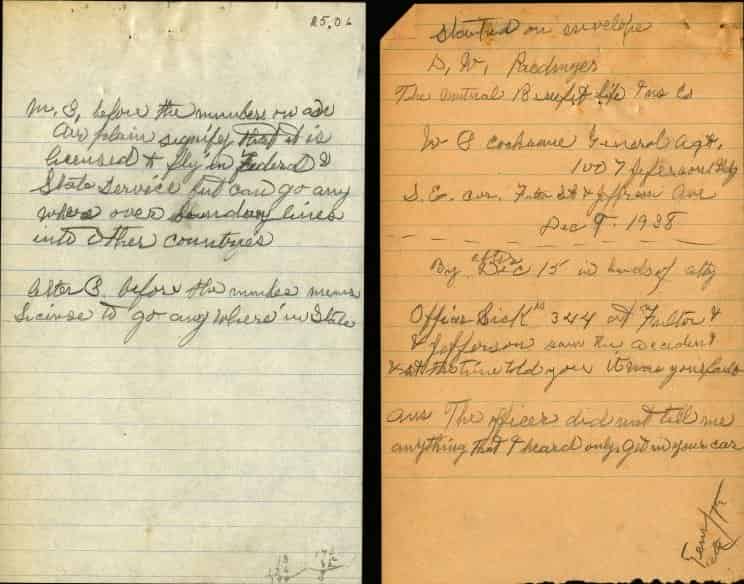 25.06
M. C, before the numbers on an
air plain signify that it is
licensed to fly in Federal &
State Service but can go any
where over boundary lines
into other countryes
letter C. before the number means
license to go any where in State
Started on envelope
D, W,
The mutual Benefit life Ins Co
W P General Agt,
1007 Jeferson Bldg
S. E. cor. Fulton St & Jeffrson Ave
Dec 9. 1938
By after Dec 15 in hands of atty
Officer Sick No 344 at Fulton &
& Jefferson saw the accident
& at the time told you it was your fault
ans The officer did not tell me
anything that I heard only, get in your car